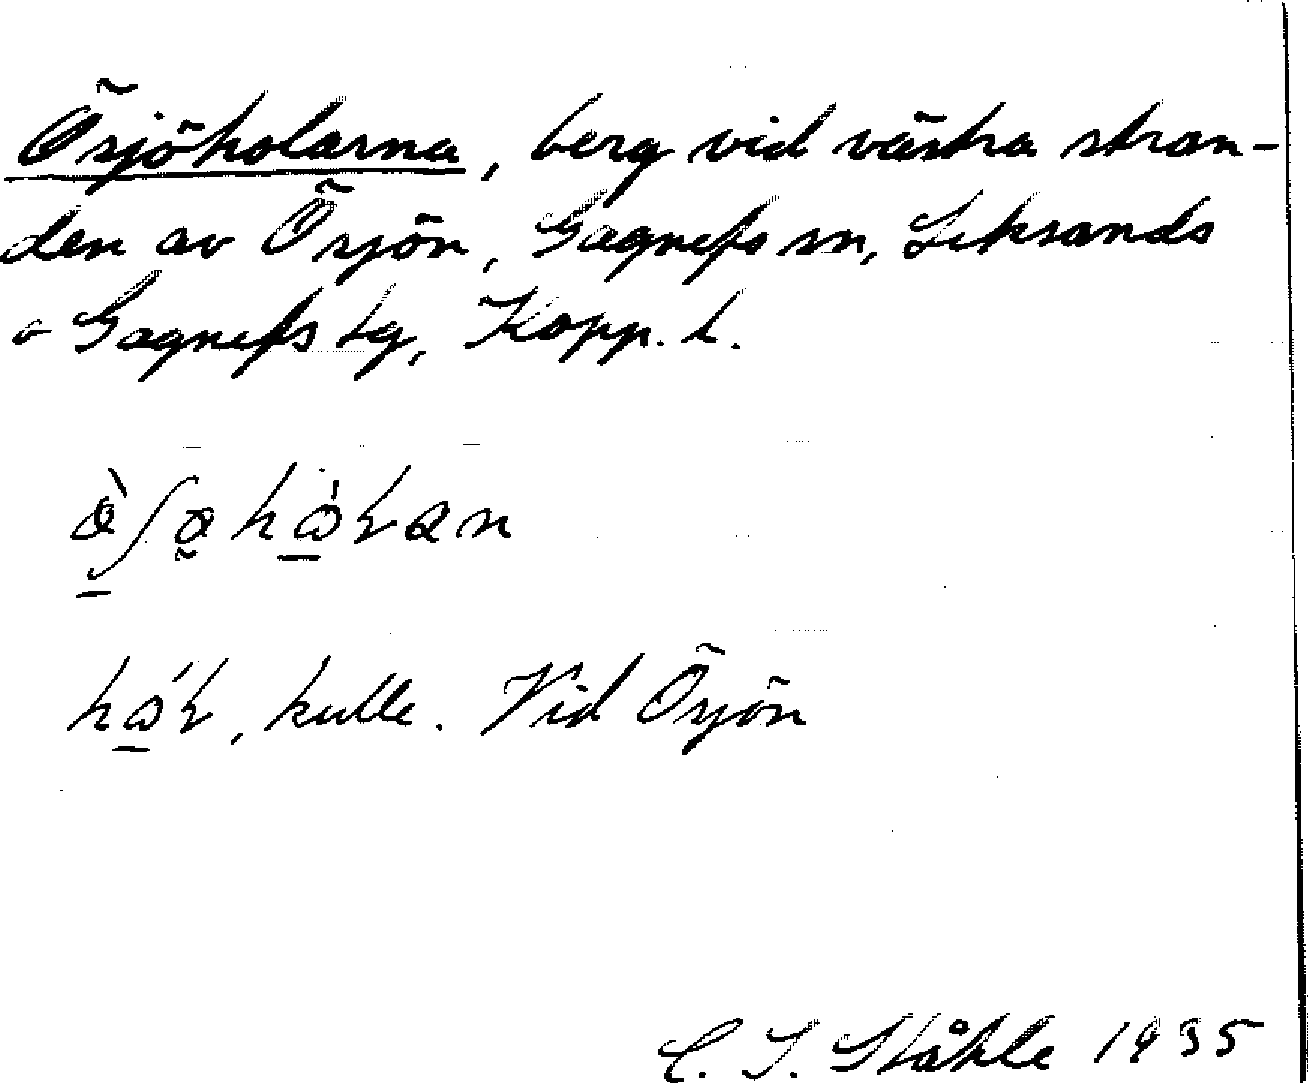 Ösjöholarna, berg vid västra stran-
den av Ösjön, Gagnefs sn, Leksands
o Gagnefs tg, Kopp. l.
kulle. Vid Ösjön
C. I. Ståhle 1935